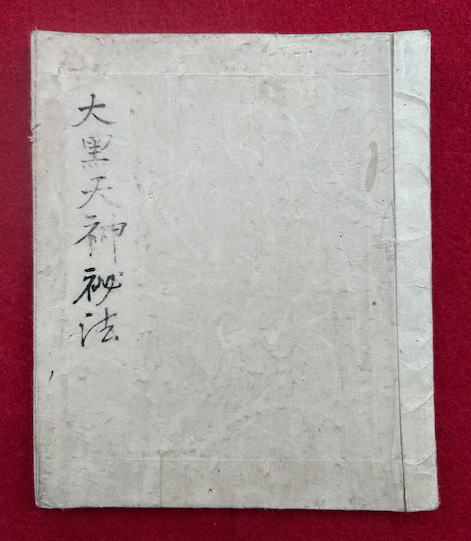 大黑天神秘法